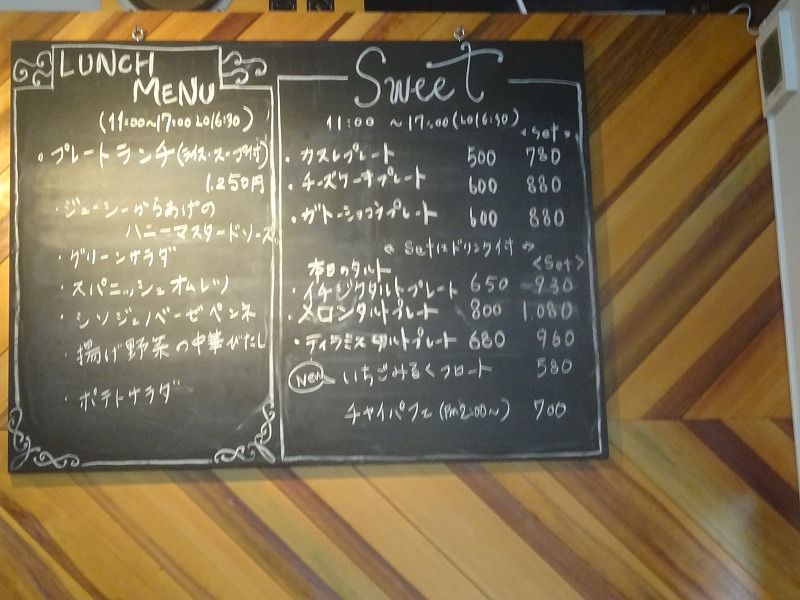 LUNCH
MENU
(11:00〜17:00 LO16:30)
・プレートランチ(ライス・スープ付)
1.250円
・ジューシーからあげの
ハニーマスタードソース
・グリーンサラダ
・スパニッシュオムレツ
・シソジェノベーゼペンネ
・揚げ野菜の中華びたし
・ポテトサラダ
Sweet
11:00 〜17:00(LO16:30)
<set>
・カヌレプレート 500 780
・チーズケーキプレート 600 880
・ガトーショコラプレート 600 880
《Setはドリンク付》
本日のタルト <Set>
・イチジクタルトプレート 650 930
・メロンタルトプレート 800 1.080
・ティラミスタルトプレート 680 960
New いちごみるくフロート 580
チャイパフェ(PM2:00〜) 700